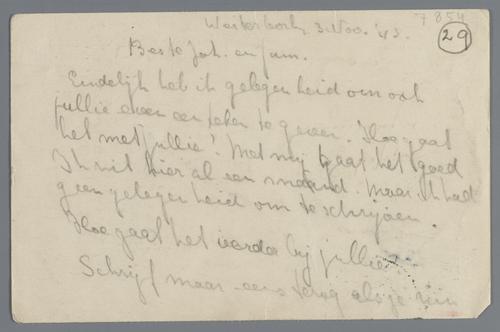 7854
29
Westerbork 3 Nov. '43.
Beste Joh. en fam.
Eindelijk heb ik gelegenheid om ook
jullie even een teken te geven. Hoe gaat
het met jullie? Met mij gaat het goed
Ik zit hier al een maand. Maar ik had
geen gelegenheid om te schrijven.
Hoe gaat het verder bij jullie
Schrijf maar eens terug als je zin